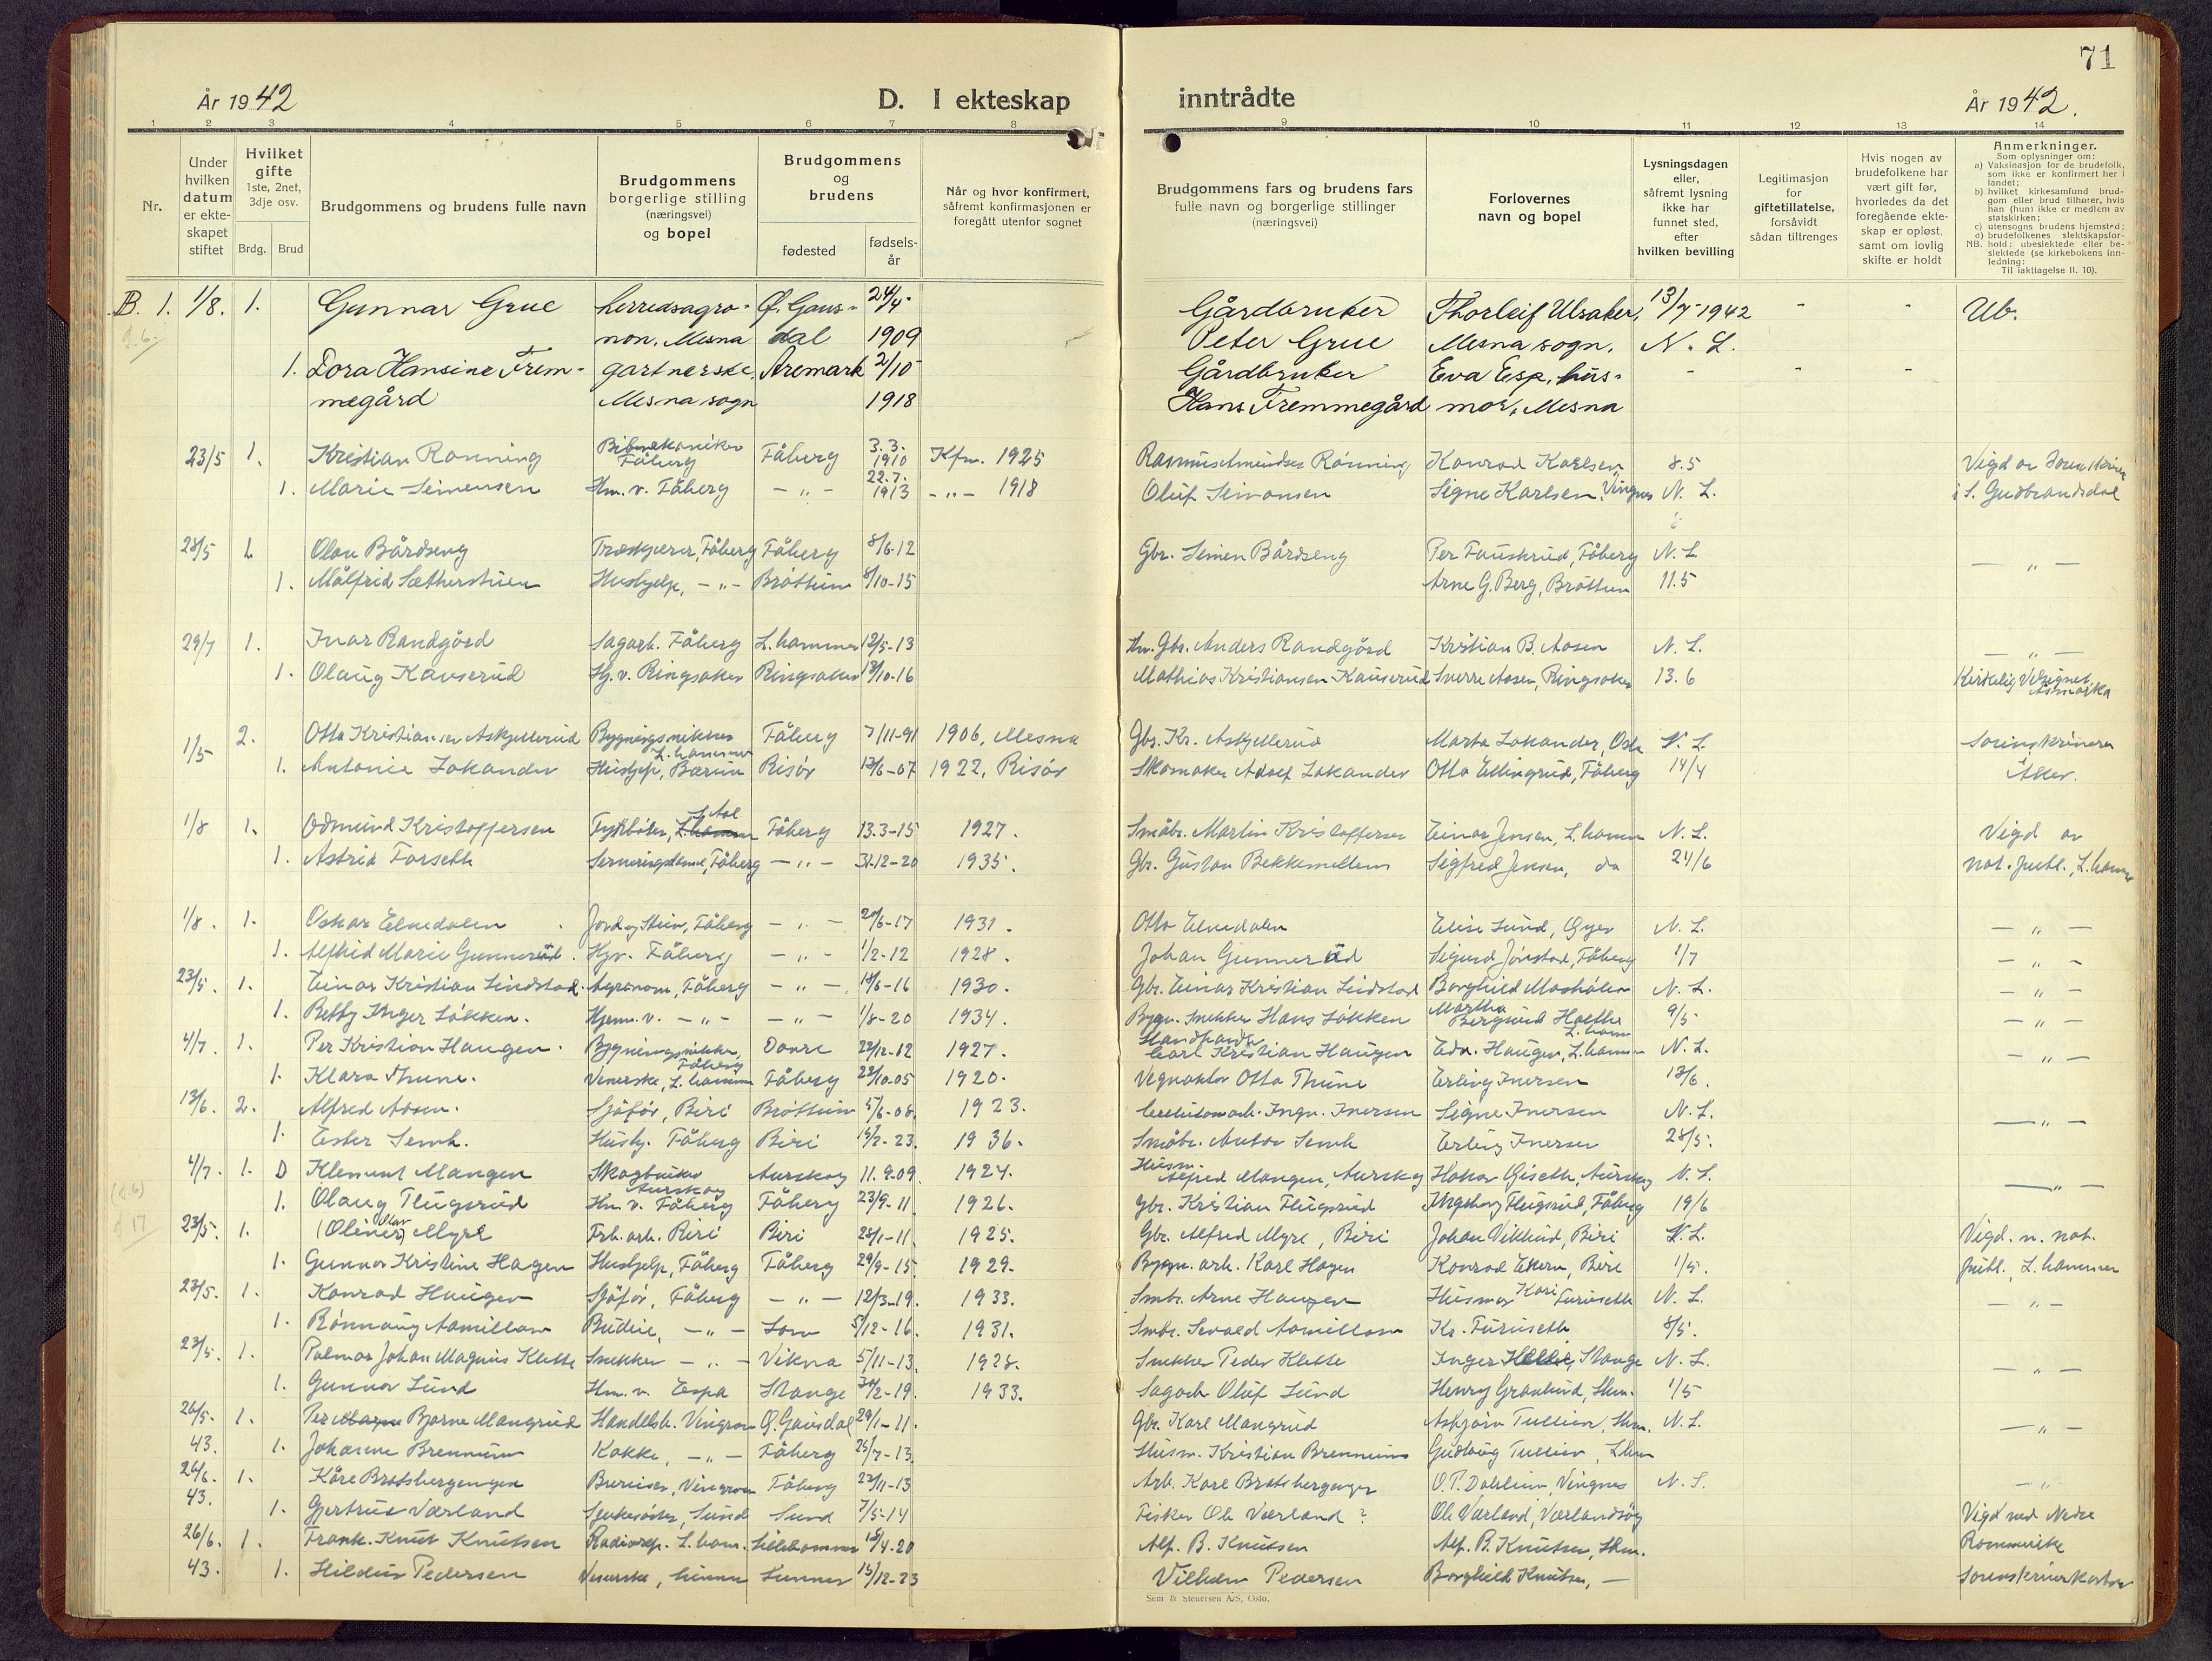 71
År 1942
D. I ekteskap inntrådte
År 1942.
1 2 3 4 5 6 7 8 9 10 11 12 13 14
Nr.
Under hvilken datum er ekte-skapet stiftet
Hvilket gifte 1ste, 2net, 3dje osv.
Brdg. Brud
Brudgommens og brudens fulle navn
Brudgommens borgerlige stilling (næringsvei) og bopel
Brudgommens og brudens
fødested
fødsels-år
Når og hvor konfirmert, såfremt konfirmasjonen er foregått utenfor sognet
Brudgommens fars og brudens fars fulle navn og borgerlige stillinger (næringsvei)
Forlovernes navn og bopel
Lysningsdagen eller, såfremt lysning ikke har funnet sted, efter hvilken bevilling
Legitimasjon for giftetillatelse, forsåvidt sådan tiltrenges
Hvis nogen av brudefolkene har vært gift før, hvorledes da det foregående ekte-skap er opløst, samt om lovlig skifte er holdt
Anmerkninger.
Som oplysninger om:
a) Vaksinasjon for de brudefolk, som ikke er konfirmert her i landet;
b) hvilket kirkesamfund brud-gom eller brud tilhører, hvis han (hun) ikke er medlem av statskirken;
c) utensogns brudens hjemsted;
d) brudefolkenes slektskapsfor-hold: ubeslektede eller be-slektede (se kirkebokens inn-ledning:
NB.
Til iakttagelse II. 10).
B. 1. 1/8. 1. Gunnar Grue herredsagro- Ø. Gaus- 24/4- Gårdbruker Thorleif Ulsaker, 13/7-1942 - - Ub.
non. Mesna dal 1909 Peter Grue Mesna sogn. N. L.
1. Dora Hansine Frem- gartnerske, Aremark 2/10 Gårdbruker Eva Esp, hus- - - -
megård Mesna sogn 1918 Hans Fremmegård mor, Mesna
23/5 1. Kristian Rønning Fåberg Fåberg 3.3. 1910 Kfm. 1925 Konrad Karlsen 8.5 Vigd av
1. Marie Simensen Hm. v. Fåberg - " - 22.7. 1913 - " - 1918 Oluf Simonsen Signe Karlsen, Vingnes N. L. i S. Gudbrandsdal
28/5 1. Olav Bårdseng Fåberg Fåberg 8/6-12 Gbr. Simen Bårdseng Per Fauskrud, Fåberg N. L.
1. Målfrid Sætherstuen Hushjelp, - " - Brøttum 8/10-15 Arne G. Berg, Brøttum 11.5 — " —
29/7 1. Ivar Randgård Sagarb. Fåberg L.hammer 12/5-13 Gbr. Anders Randgård Kristian B. Aasen N. L. — " —
1. Olaug Kauserud Hj. v. Ringsaker Ringsaker 18/10-16 Mathias Kristiansen Kauserud Sverre Aasen, Ringsaker 13.6 Kirkelig Velsignet Åsmarka
1/5 2. Otto Kristiansen Askjellerud Fåberg 7/11-91 1906, Mesna Gbr. Kr. Askjellerud Marta Lokander, Oslo N. L. Sorenskriveren
1. Antonie Lokander Hushjelp, Bærum Risør 13/6-07 1922, Risør Skomaker Adolf Lokander Otto Ellingrud, Fåberg 14/4 Aker.
1/8 1. Odmund Kristoffersen Fåberg 13.3-15 1927. Småbr. Martin Kristoffersen Einar Jensen, L.hamm N. L. Vigd av
1. Astrid Forseth Serveringsdame, Fåberg - " - 31-12-20 1935. Gbr. Gustav Bekkemellem Sigfred Jensen, do 24/6 not. publ., L.hamm
1/8. 1. Oskar Elvedalen Fåberg - " - 20/6-17 1931. Otto Elvedalen Elise Lund, Øyer N. L. — " —
1. Alfhild Marie Gunnerud. Hjv. Fåberg - " - 1/2-12 1928. Johan Gunnerud Sigurd Jörstad, Fåberg 1/7 — " —
23/5. 1. Einar Kristian Lindstad. Agronom, Fåberg - " - 18/6-16 1930. Gbr. Einar Kristian Lindstad N. L. — " —
1. Betty Inger Løkken. Hjem. v. - " - - " - 1/8-20 1934. Bygn. Snekker Hans Løkken 9/5 — " —
4/7. 1. Per Kristian Haugen. Bygningssnikker, Fåberg Dovre 22/12-12 1927. Carl Kristian Haugen Edv. Haugen, L.hammer N. L. — " —
1. Klara Thune. Veverske, L.hammer Fåberg 22/10-05 1920. Vegvokter Otto Thune Erling Iversen 18/6.
13/6. 2. Alfred Aasen. Sjåfør, Biri Brøttum 5/6-08. 1923. Ingv. Iversen Signe Iversen N. L. — " —
1. Ester Semb. Hushj. Fåberg Biri 1936. Småbr. Anton Semb Erling Iversen 28/5.
4/7. 1. D Klement Mangen Skogbruker Aurskog Aurskog 11.9-09. 1924. Alfred Mangen, Aurskog Håkon Giseth, Aurskog N. L. — " —
1. Olaug Flugsrud Hm. v. Fåberg Fåberg 23/9-11 1926. Gbr. Kristian Flugsrud Ingeborg Flugsrud, Fåberg 19/6
23/5. 1. (Oliver) Olav Myre Frb. arb. Biri Biri 28/1-11. 1925. Gbr. Alfred Myre, Biri Johan Viklund, Biri N. L. Vigd. n. not.
1. Gunvor Kristine Hagen Hushjelp, Fåberg Fåberg 29/9-15. 1929. Bygn. arb. Karl Hagen Konrad Ekern, Biri 1/5. publ., L.hammer
23/5. 1. Konrad Haugen Sjåfør, Fåberg - " - 12/3-19. 1933. Smbr. Arne Haugen Husmor Kari Furuseth N. L. — " —
1. Rönnaug Aamillom Budeie, - " - Lom 5/12-16. 1931. Smbr. Sevald Aamillom Kr. Furuseth 8/5.
23/5. 1. Palmar Johan Magnus Klette Snekker - " - Vikna 5/11-13. 1928. Snekker Peder Klette Inger Stange N. L. — " —
1. Gunvor Lund Hm. v. Espa Stange 1933. Sagarb. Oluf Lund Henry Granlund, Lhm. 1/5
26/5. 1. Per Bjarne Mangrud Handelsb. Vingrom Ø. Gausdal 29/1-11. Gbr. Karl Mangrud N. L. — " —
43. 1. Johanne Brennum Kokke, - " - Fåberg 25/7-13. Husm. Kristian Brennum Gudbjørg Tullien, Lhm
26/6. 43. 1. Kåre Bratsbergengen Bureiser, Vingrom Fåberg 22/11-13 Arb. Karl Bratsbergengen O. P. Dahlum, Vingnes N. L. — "
1. Gjertrud Værland Sykesøster, Sund Sund 7/5-14 Fisker Ole Værland? Ole Værland, Værlandsøy Vigd ved Nedre
26/6. 1. Frank. Knut Knutsen Radiorep. L.ham. Lillehammer 18/4-20 Alf. B. Knutsen Alf. B. Knutsen, Lhm. Romerike
43. 1. Hildur Pedersen Veverske, Lunner Lunner 15/12-23 Vilhelm Pedersen Borghild Knutsen, — Sorenskriverkontor
Sem & Stenersen A/S, Oslo.